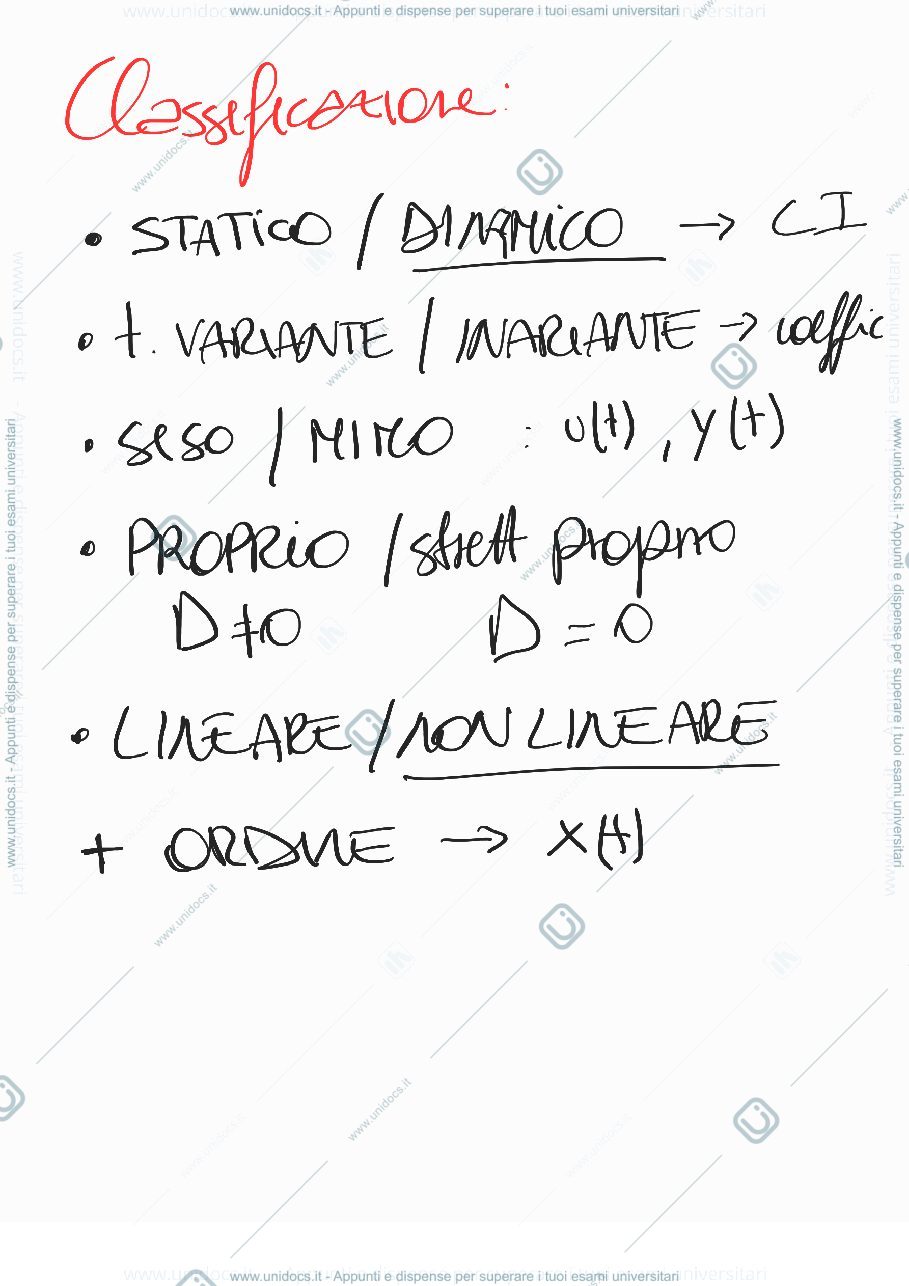 www.unidocs.it - Appunti e dispense per superare i tuoi esami universitari
Classificazione:
• STATICO / DINAMICO → CI
• t. VARIANTE / INVARIANTE → coeffic
• SISO / MIMO : u(t), y(t)
• PROPRIO / strett proprio
D ≠ 0 D = 0
• LINEARE / NON LINEARE
+ ORDINE → x(t)
www.unidocs.it - Appunti e dispense per superare i tuoi esami universitari
www.unidocs.it - Appunti e dispense per superare i tuoi esami universitari
www.unidocs.it - Appunti e dispense per superare i tuoi esami universitari
www.unidocs.it
www.unidocs.it
www.unidocs.it
www.unidocs.it
www.unidocs.it
www.unidocs.it